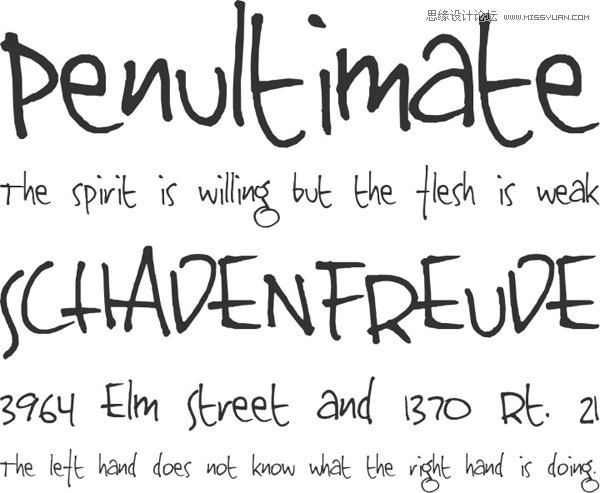 思缘设计论坛 WWW.MISSYUAN.COM
Penultimate
The spirit is willing but the flesh is weak
SCHADENFREUDE
3964 Elm Street and 1370 Rt. 21
The left hand does not know what the right hand is doing.